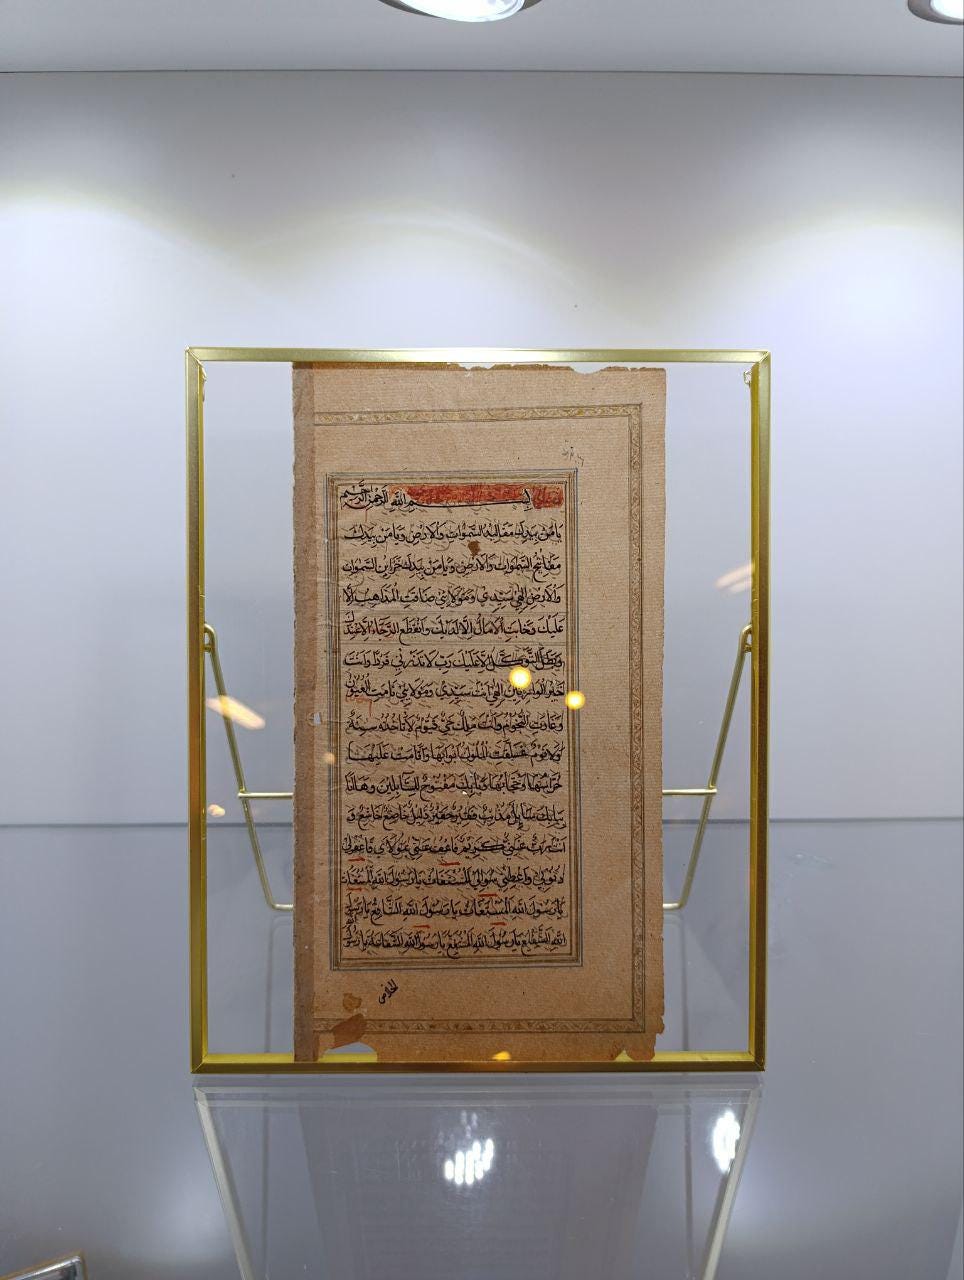 بِسْمِ اللهِ الرَّحْمٰنِ الرَّحِيْمِ
يَا مَنْ بِيَدِكَ مَقَالِيْدُ السَّمٰوَاتِ وَالْاَرْضِ وَيَا مَنْ بِيَدِكَ
مَفَاتِيْحُ السَّمٰوَاتِ وَالْاَرْضِ وَيَا مَنْ بِيَدِكَ خَزَايِنُ السَّمٰوَاتِ
وَالْاَرْضِ اِلٰهِيْ سَيِّدِيْ وَمَوْلَائِيْ ضَاقَتِ الْمَذَاهِبُ اِلَّا
عَلَيْكَ وَخَابَتِ الْاٰمَالُ اِلَّا لَدَيْكَ وَانْقَطَعَ الرَّجَاءُ اِلَّا عِنْدَكَ
وَبَطَلَ التَّوَكُّلُ اِلَّا عَلَيْكَ رَبِّ لَا تَذَرْنِيْ فَرْدًا وَاَنْتَ
خَيْرُ الْوَارِثِيْنَ اِلٰهِيْ اَنْتَ سَيِّدِيْ وَمَوْلَائِيْ نَامَتِ الْعُيُوْنُ
وَغَارَتِ النُّجُوْمُ وَاَنْتَ مَلِكٌ حَيٌّ قَيُّوْمٌ لَا تَاْخُذُهٗ سِنَةٌ
وَلَا نَوْمٌ غَلَقَتِ الْمُلُوْكُ اَبْوَابَهَا وَاَقَامَتْ عَلَيْهَا
حُرَّاسَهَا وَحُجَّابَهَا وَبَابُكَ مَفْتُوْحٌ لِلسَّآئِلِيْنَ وَهَا اَنَا
سَائِلٌ مُذْنِبٌ فَقِيْرٌ حَقِيْرٌ ذَلِيْلٌ خَاضِعٌ خَاشِعٌ وَ
اَنْتَ رَبٌّ غَنِيٌّ كَرِيْمٌ فَاعْفُ عَنِّيْ يَا مَوْلَايَ فَاغْفِرْ لِيْ
ذُنُوْبِيْ وَاَعْطِنِيْ سُؤَالِيْ الْمُسْتَغَاثُ يَا رَسُوْلَ اللهِ الْمُسْتَغَاثُ
يَا رَسُوْلَ اللهِ الْمُسْتَغَاثُ يَا رَسُوْلَ اللهِ الشَّافِعُ يَا رَسُوْلَ
اللهِ الشَّفِيْعُ يَا رَسُوْلَ اللهِ الْمُشَفَّعُ يَا رَسُوْلَ اللهِ الشَّفَاعَةُ يَا رَسُوْلَ